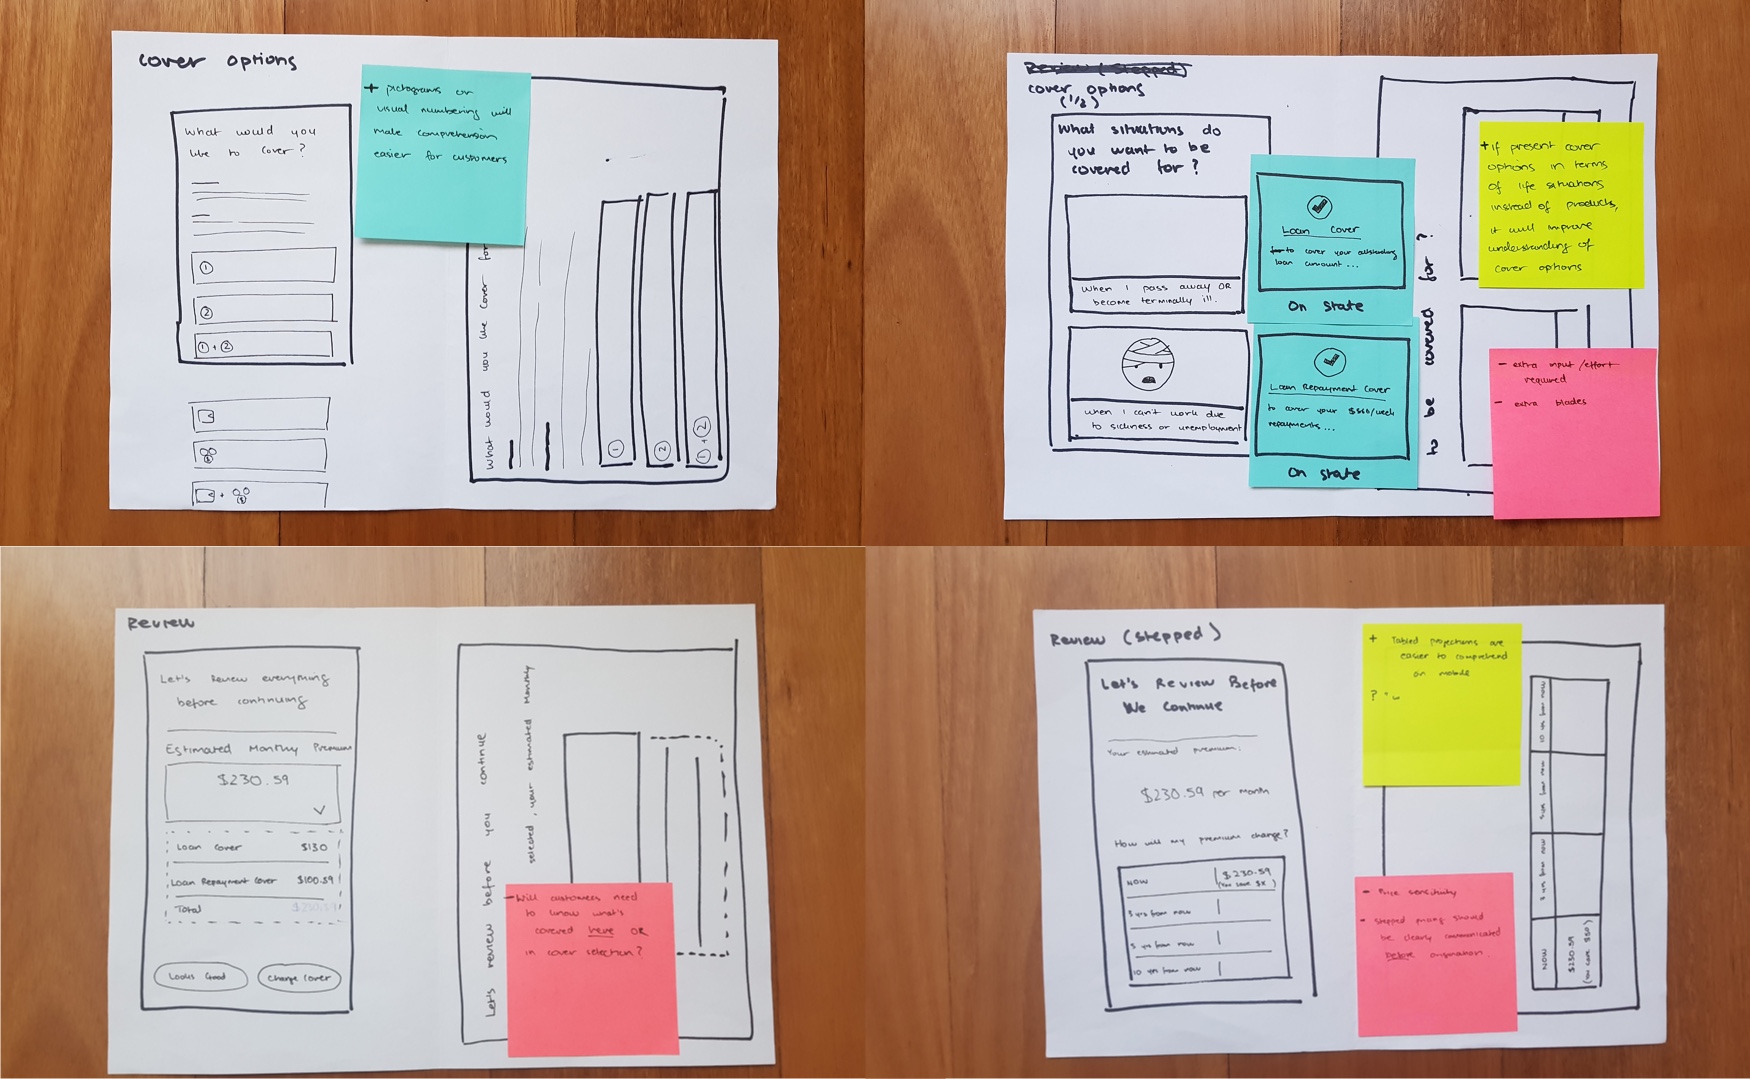 Cover options
What would you
like to cover?
1
2
1 + 2
+
+ pictograms or
visual numbering will
make comprehension
easier for customers
What would you like cover for
1
2
1 + 2
Review (stepped)
cover options
(1/2)
What situations do
you want to be
covered for?
When I pass away OR
become terminally ill.
When I can't work due
to sickness or unemployment
Loan Cover
to cover your outstanding
loan amount...
On state
Loan Repayment Cover
to cover your $560/week
repayments...
On state
to be covered for?
+ If present cover
options in terms
of life situations
instead of products,
it will improve
understanding of
cover options
- extra input/effort
required
- extra blades
Review
Let's Review everything
before continuing
Estimated Monthly Premium
$230.59
Loan Cover $130
Loan Repayment Cover $100.59
Total $230.59
Looks Good
Change Cover
Let's review before you continue
selected, your estimated monthly
- Will customers need
to know what's
covered here OR
in cover selection?
Review (stepped)
Let's Review Before
We Continue
Your estimated premium:
$230.59 per month
How will my premium change?
NOW $230.59
(You save $X)
3 yrs from now
5 yrs from now
10 yrs from now
+ Tabled projections are
easier to comprehend
on mobile
?
- Price sensitivity
- stepped pricing should
be clearly communicated
before origination.
NOW
$230.59
3 yrs from now
5 yrs from now
10 yrs from now